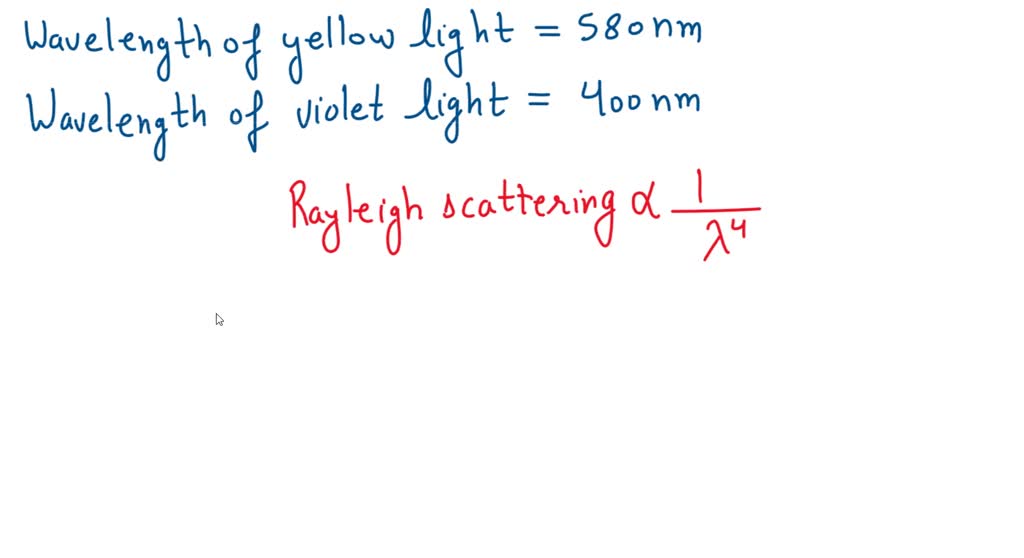 Wavelength of yellow light = 580 nm
Wavelength of violet light = 400 nm
Rayleigh scattering ∝ 1/λ⁴